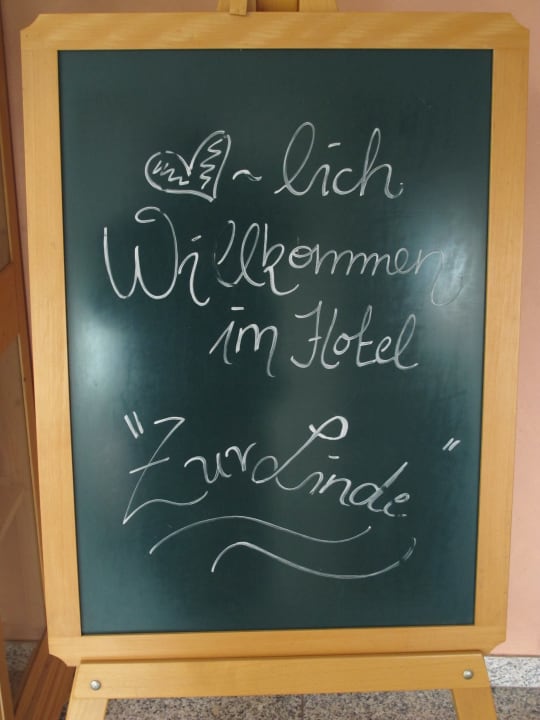 ♥~lich
Willkommen
im Hotel
"Zur Linde"